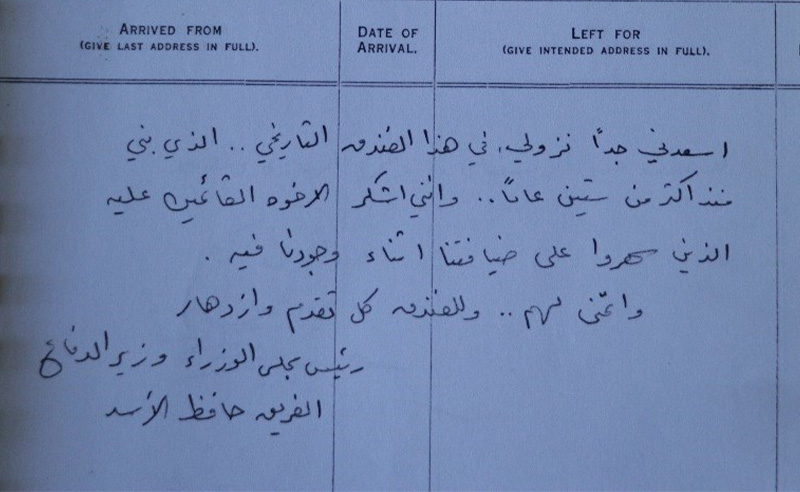 ARRIVED FROM
(GIVE LAST ADDRESS IN FULL).
DATE OF
ARRIVAL.
LEFT FOR
(GIVE INTENDED ADDRESS IN FULL).
اسعدني جداً نزولي في هذا الفندق التاريخي .. الذي بني
منذ اكثر من ستين عاماً .. وانني اشكر الاخوه القائمين عليه
الذين سهروا على ضيافتنا اثناء وجودنا فيه .
واتمنى لهم .. وللفندق كل تقدم وازدهار
رئيس مجلس الوزراء وزير الدفاع
الفريق حافظ الأسد